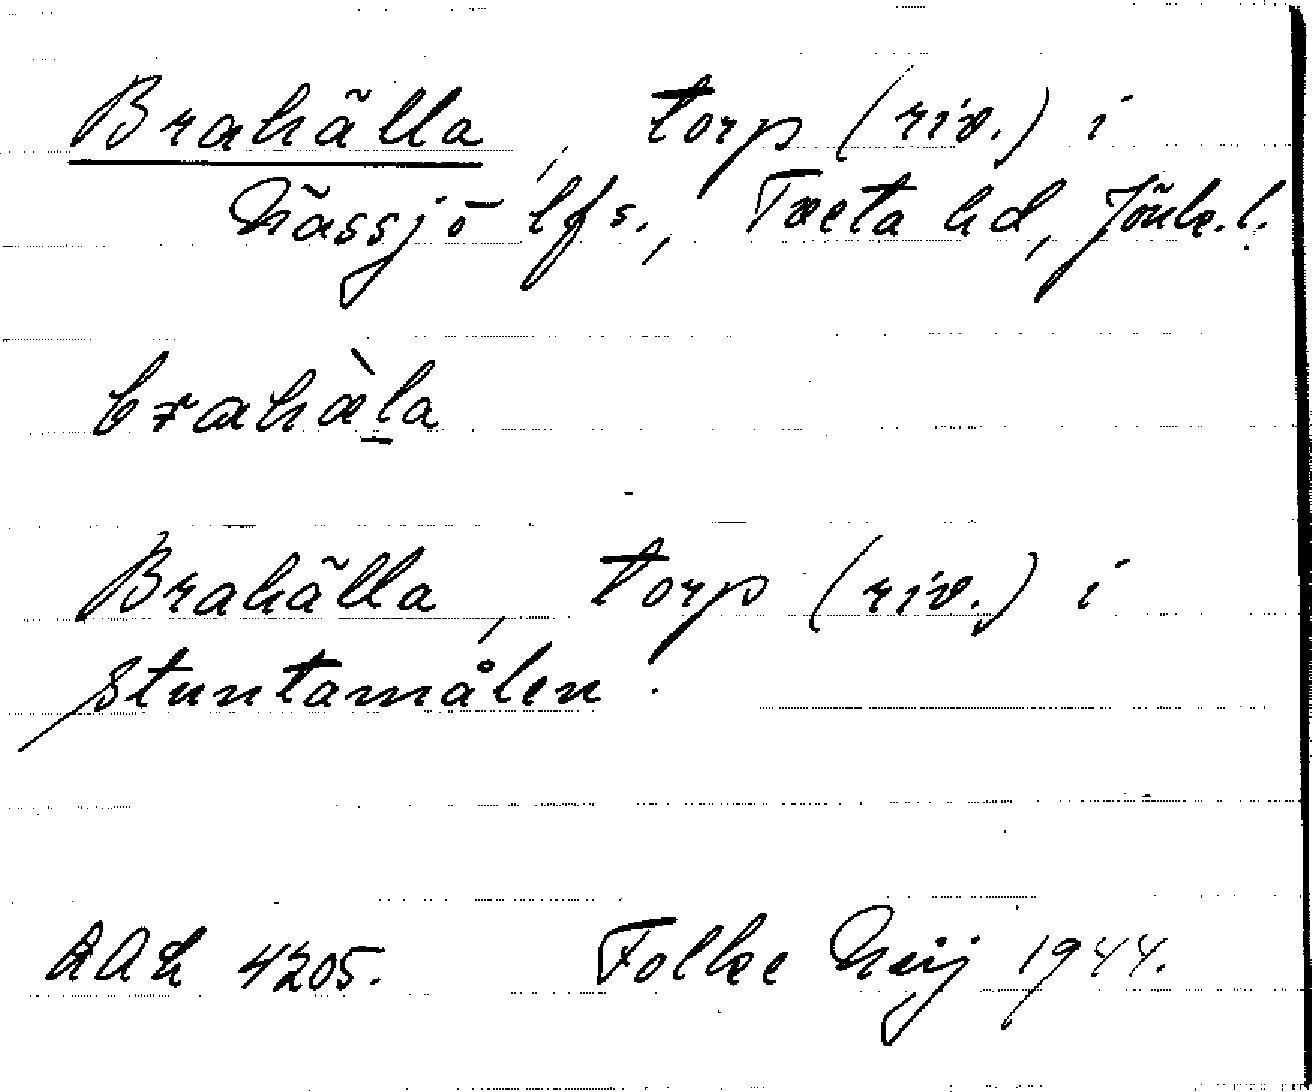 Brahälla, torp (riv.) i
Nässjö lfs., Tveta hd, Jönk. l.
brahæ̀la
Brahälla, torp (riv.) i
Stuntamålen.
4205. Folke Neij 1944.